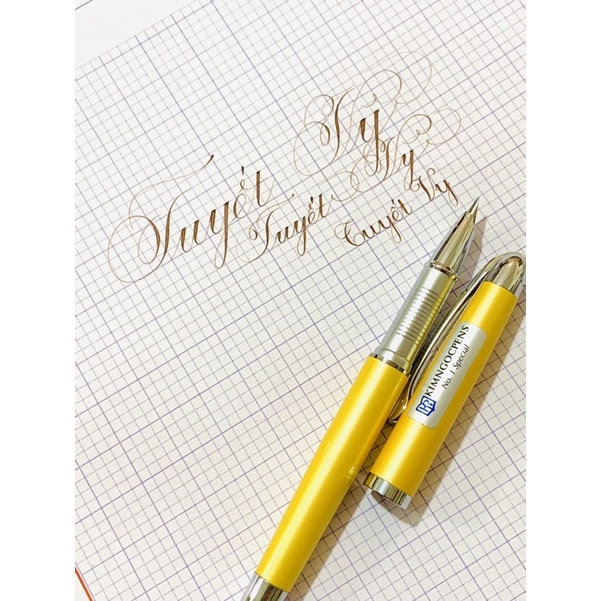 Tuyết Vy
Tuyết Vy
Tuyết Vy
KIMNGOCPENS
No. 1 Special